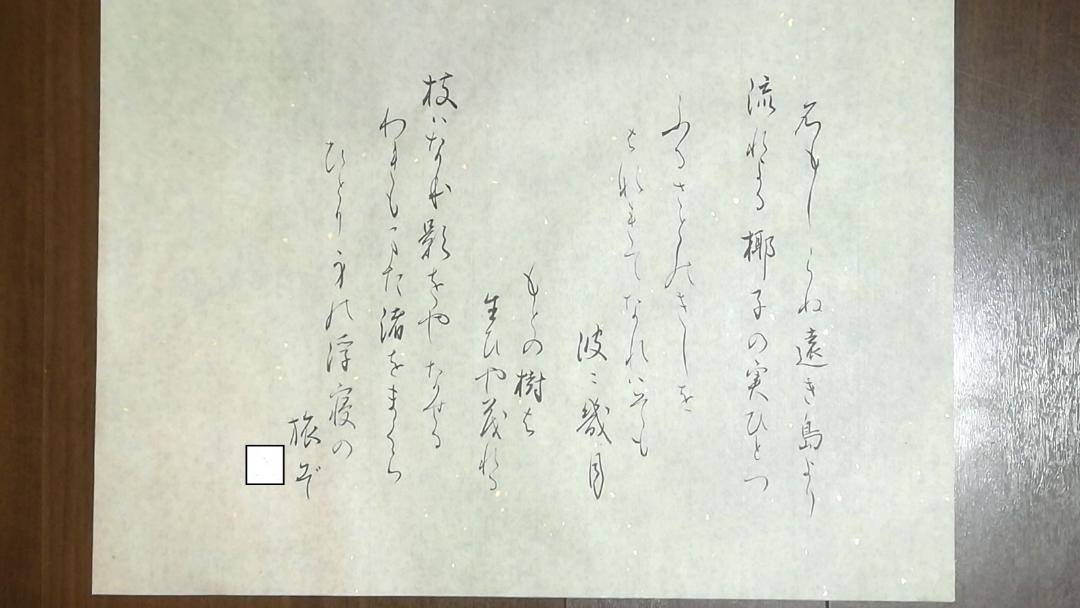 名もしらぬ遠き島より
流れよる椰子の実ひとつ
ふるさとのきしを
はなれてなれはそも
波に幾月
もとの樹は
生ひや茂れる
枝はなほ影をやなせる
われもまた渚をまくら
ひとり身の浮寝の
旅ぞ